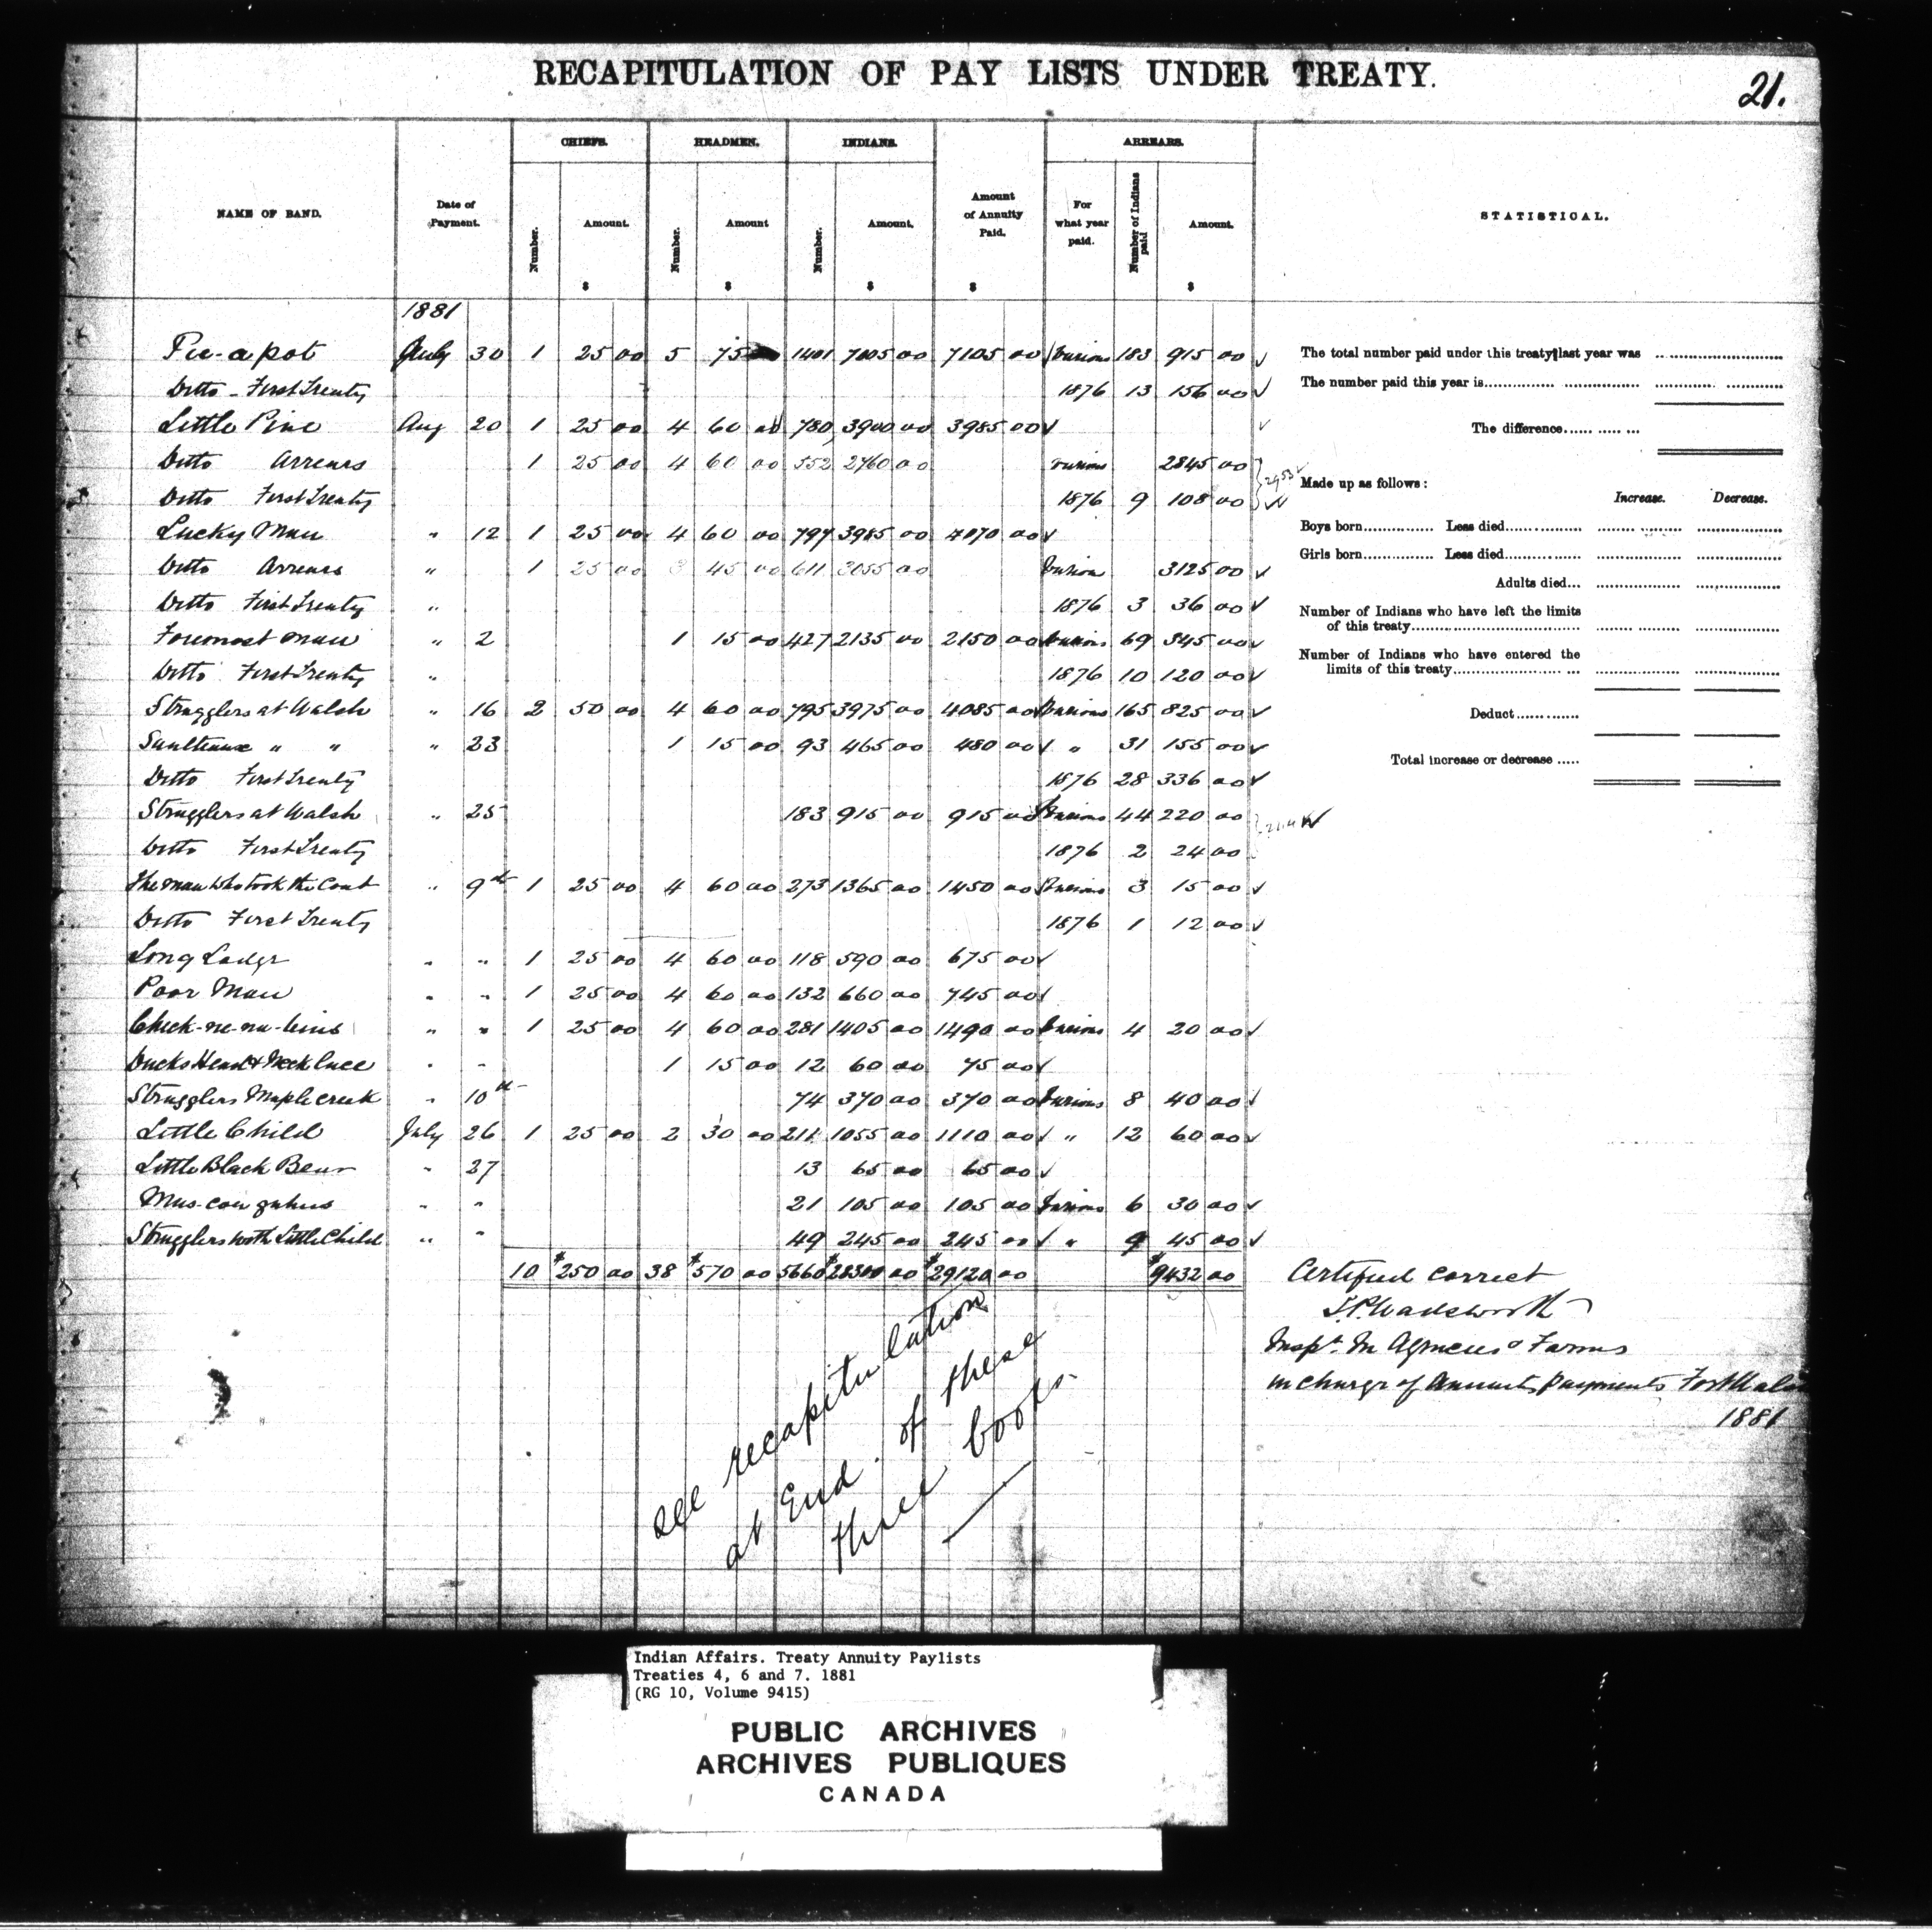 RECAPITULATION OF PAY LISTS UNDER TREATY.
21.
CHIEFS. HEADMEN. INDIANS. ARREARS.
NAME OF BAND. Date of Payment. Number. Amount. $ Number. Amount $ Number. Amount. $ Amount of Annuity Paid. $ For what year paid. Number of Indians paid Amount. $ STATISTICAL.
1881
Pie-a-pot July 30 1 25 00 5 75 1401 7005 00 7105 00 Various 183 915 00 ✓
Ditto - First Treaty 1876 13 156 00 ✓
Little Pine Aug 20 1 25 00 4 60 00 780 3900 00 3985 00 ✓
Ditto Arrears 1 25 00 4 60 00 552 2760 00 Various 2845 00
Ditto First Treaty 1876 9 108 00 2953 ✓
Lucky Man " 12 1 25 00 4 60 00 797 3985 00 4070 00 ✓
Ditto Arrears " 1 25 00 3 45 00 611 3055 00 Various 3125 00 ✓
Ditto First Treaty " 1876 3 36 00 ✓
Foremost Man " 2 1 15 00 427 2135 00 2150 00 Various 69 345 00 ✓
Ditto First Treaty " 1876 10 120 00 ✓
Stragglers at Walsh " 16 2 50 00 4 60 00 795 3975 00 4085 00 Various 165 825 00 ✓
Saulteaux " " " 23 1 15 00 93 465 00 480 00 ✓ " 31 155 00 ✓
Ditto First Treaty 1876 28 336 00 ✓
Stragglers at Walsh " 25 183 915 00 915 00 Various 44 220 00
Ditto First Treaty 1876 2 24 00
The man who took the Coat " 9th 1 25 00 4 60 00 273 1365 00 1450 00 Various 3 15 00 ✓
Ditto First Treaty 1876 1 12 00 ✓
Long Lodge " " 1 25 00 4 60 00 118 590 00 675 00 ✓
Poor Man " " 1 25 00 4 60 00 132 660 00 745 00 ✓
" " 1 25 00 4 60 00 281 1405 00 1490 00 Various 4 20 00 ✓
Ducks Head & Necklace " " 1 15 00 12 60 00 75 00 ✓
Stragglers Maple Creek " 10th 74 370 00 370 00 Various 8 40 00 ✓
Little Child July 26 1 25 00 2 30 00 211 1055 00 1110 00 ✓ " 12 60 00 ✓
Little Black Bear " 27 13 65 00 65 00 ✓
" " 21 105 00 105 00 Various 6 30 00 ✓
Stragglers with Little Child " " 49 245 00 245 00 ✓ " 9 45 00 ✓
10 $250 00 38 $570 00 5660 $28300 00 $29120 00 $9432 00
The total number paid under this treaty last year was
The number paid this year is
The difference
Made up as follows: Increase. Decrease.
Boys born Less died
Girls born Less died
Adults died
Number of Indians who have left the limits
of this treaty
Number of Indians who have entered the
limits of this treaty
Deduct
Total increase or decrease
Certified correct
T.P. Wadsworth
Inspr. In Agencies & Farms
in charge of Annuity payments Fort Walsh
1881
see recapitulation
at End of these
three books.
Indian Affairs. Treaty Annuity Paylists
Treaties 4, 6 and 7. 1881
(RG 10, Volume 9415)
PUBLIC ARCHIVES
ARCHIVES PUBLIQUES
CANADA